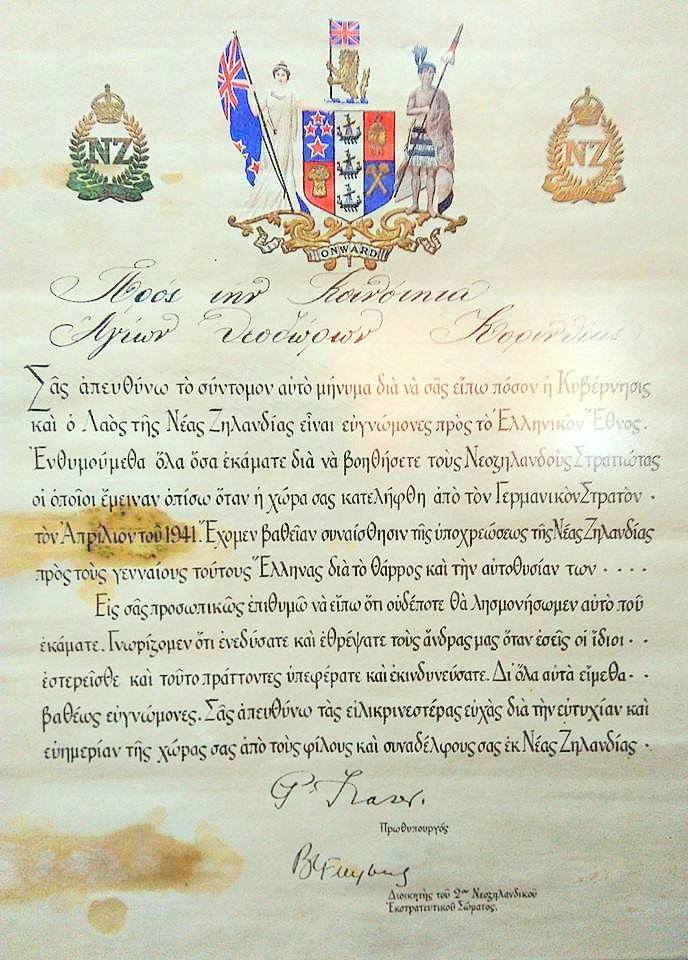 NZ
NZ
ONWARD
Πρός την Κοινότητα
Αγίων Θεοδώρων Κορινθίας
Σᾶς ἀπευθύνω τὸ σύντομον αὐτὸ μήνυμα διὰ νὰ σᾶς εἴπω πόσον ἡ Κυβέρνησις
καὶ ὁ Λαὸς τῆς Νέας Ζηλανδίας εἶναι εὐγνώμονες πρὸς τὸ Ἑλληνικὸν Ἔθνος.
Ἐνθυμούμεθα ὅλα ὅσα ἐκάματε διὰ νὰ βοηθήσετε τοὺς Νεοζηλανδοὺς Στρατιώτας
οἱ ὁποῖοι ἔμειναν ὀπίσω ὅταν ἡ χώρα σας κατελήφθη ἀπὸ τὸν Γερμανικὸν Στρατὸν ·
τὸν Ἀπρίλιον τοῦ 1941. Ἔχομεν βαθεῖαν συναίσθησιν τῆς ὑποχρεώσεως τῆς Νέας Ζηλανδίας
πρὸς τοὺς γενναίους τούτους Ἕλληνας διὰ τὸ θάρρος καὶ τὴν αὐτοθυσίαν των · · · ·
Εἰς σᾶς προσωπικῶς ἐπιθυμῶ νὰ εἴπω ὅτι οὐδέποτε θὰ λησμονήσωμεν αὐτὸ ποῦ
ἐκάματε. Γνωρίζομεν ὅτι ἐνεδύσατε καὶ ἐθρέψατε τοὺς ἄνδρας μας ὅταν ἐσεῖς οἱ ἴδιοι · ·
ἐστερεῖσθε καὶ τοῦτο πράττοντες ὑπεφέρατε καὶ ἐκινδυνεύσατε. Δι' ὅλα αὐτὰ εἴμεθα · ·
βαθέως εὐγνώμονες. Σᾶς ἀπευθύνω τὰς εἰλικρινεστέρας εὐχὰς διὰ τὴν εὐτυχίαν καὶ
εὐημερίαν τῆς χώρας σας ἀπὸ τοὺς φίλους καὶ συναδέλφους σας ἐκ Νέας Ζηλανδίας ·
P. Fraser.
Πρωθυπουργός
B. C. Freyberg
Διοικητὴς τοῦ 2ου Νεοζηλανδικοῦ
Ἐκστρατευτικοῦ Σώματος.